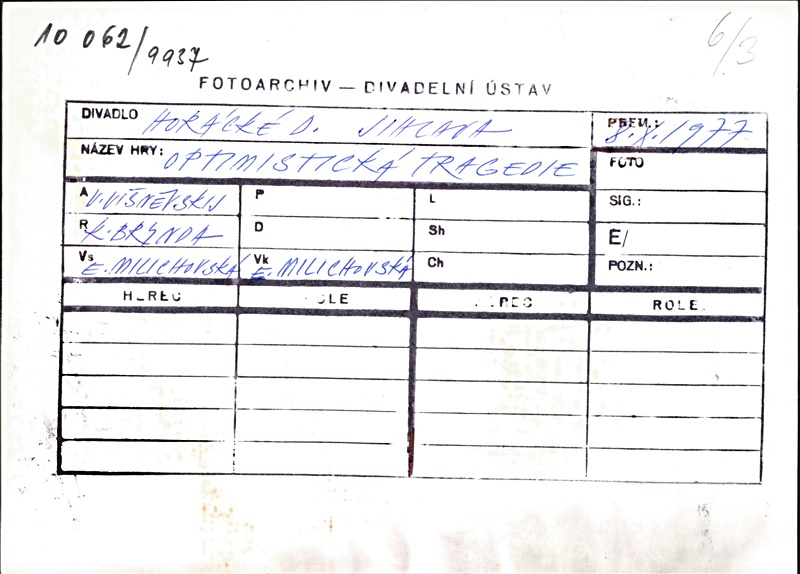 10 062/9937
6/3
FOTOARCHIV — DIVADELNÍ ÚSTAV
DIVADLO HORÁCKÉ D. JIHLAVA
PREM.: 8.X.1977
NÁZEV HRY: OPTIMISTICKÁ TRAGEDIE
FOTO
A V. VIŠNĚVSKIJ P L SIG.:
R K. BRYNDA D Sh E/
Vs E. MILICHOVSKÁ Vk E. MILICHOVSKÁ Ch POZN.:
HEREC ROLE HEREC ROLE